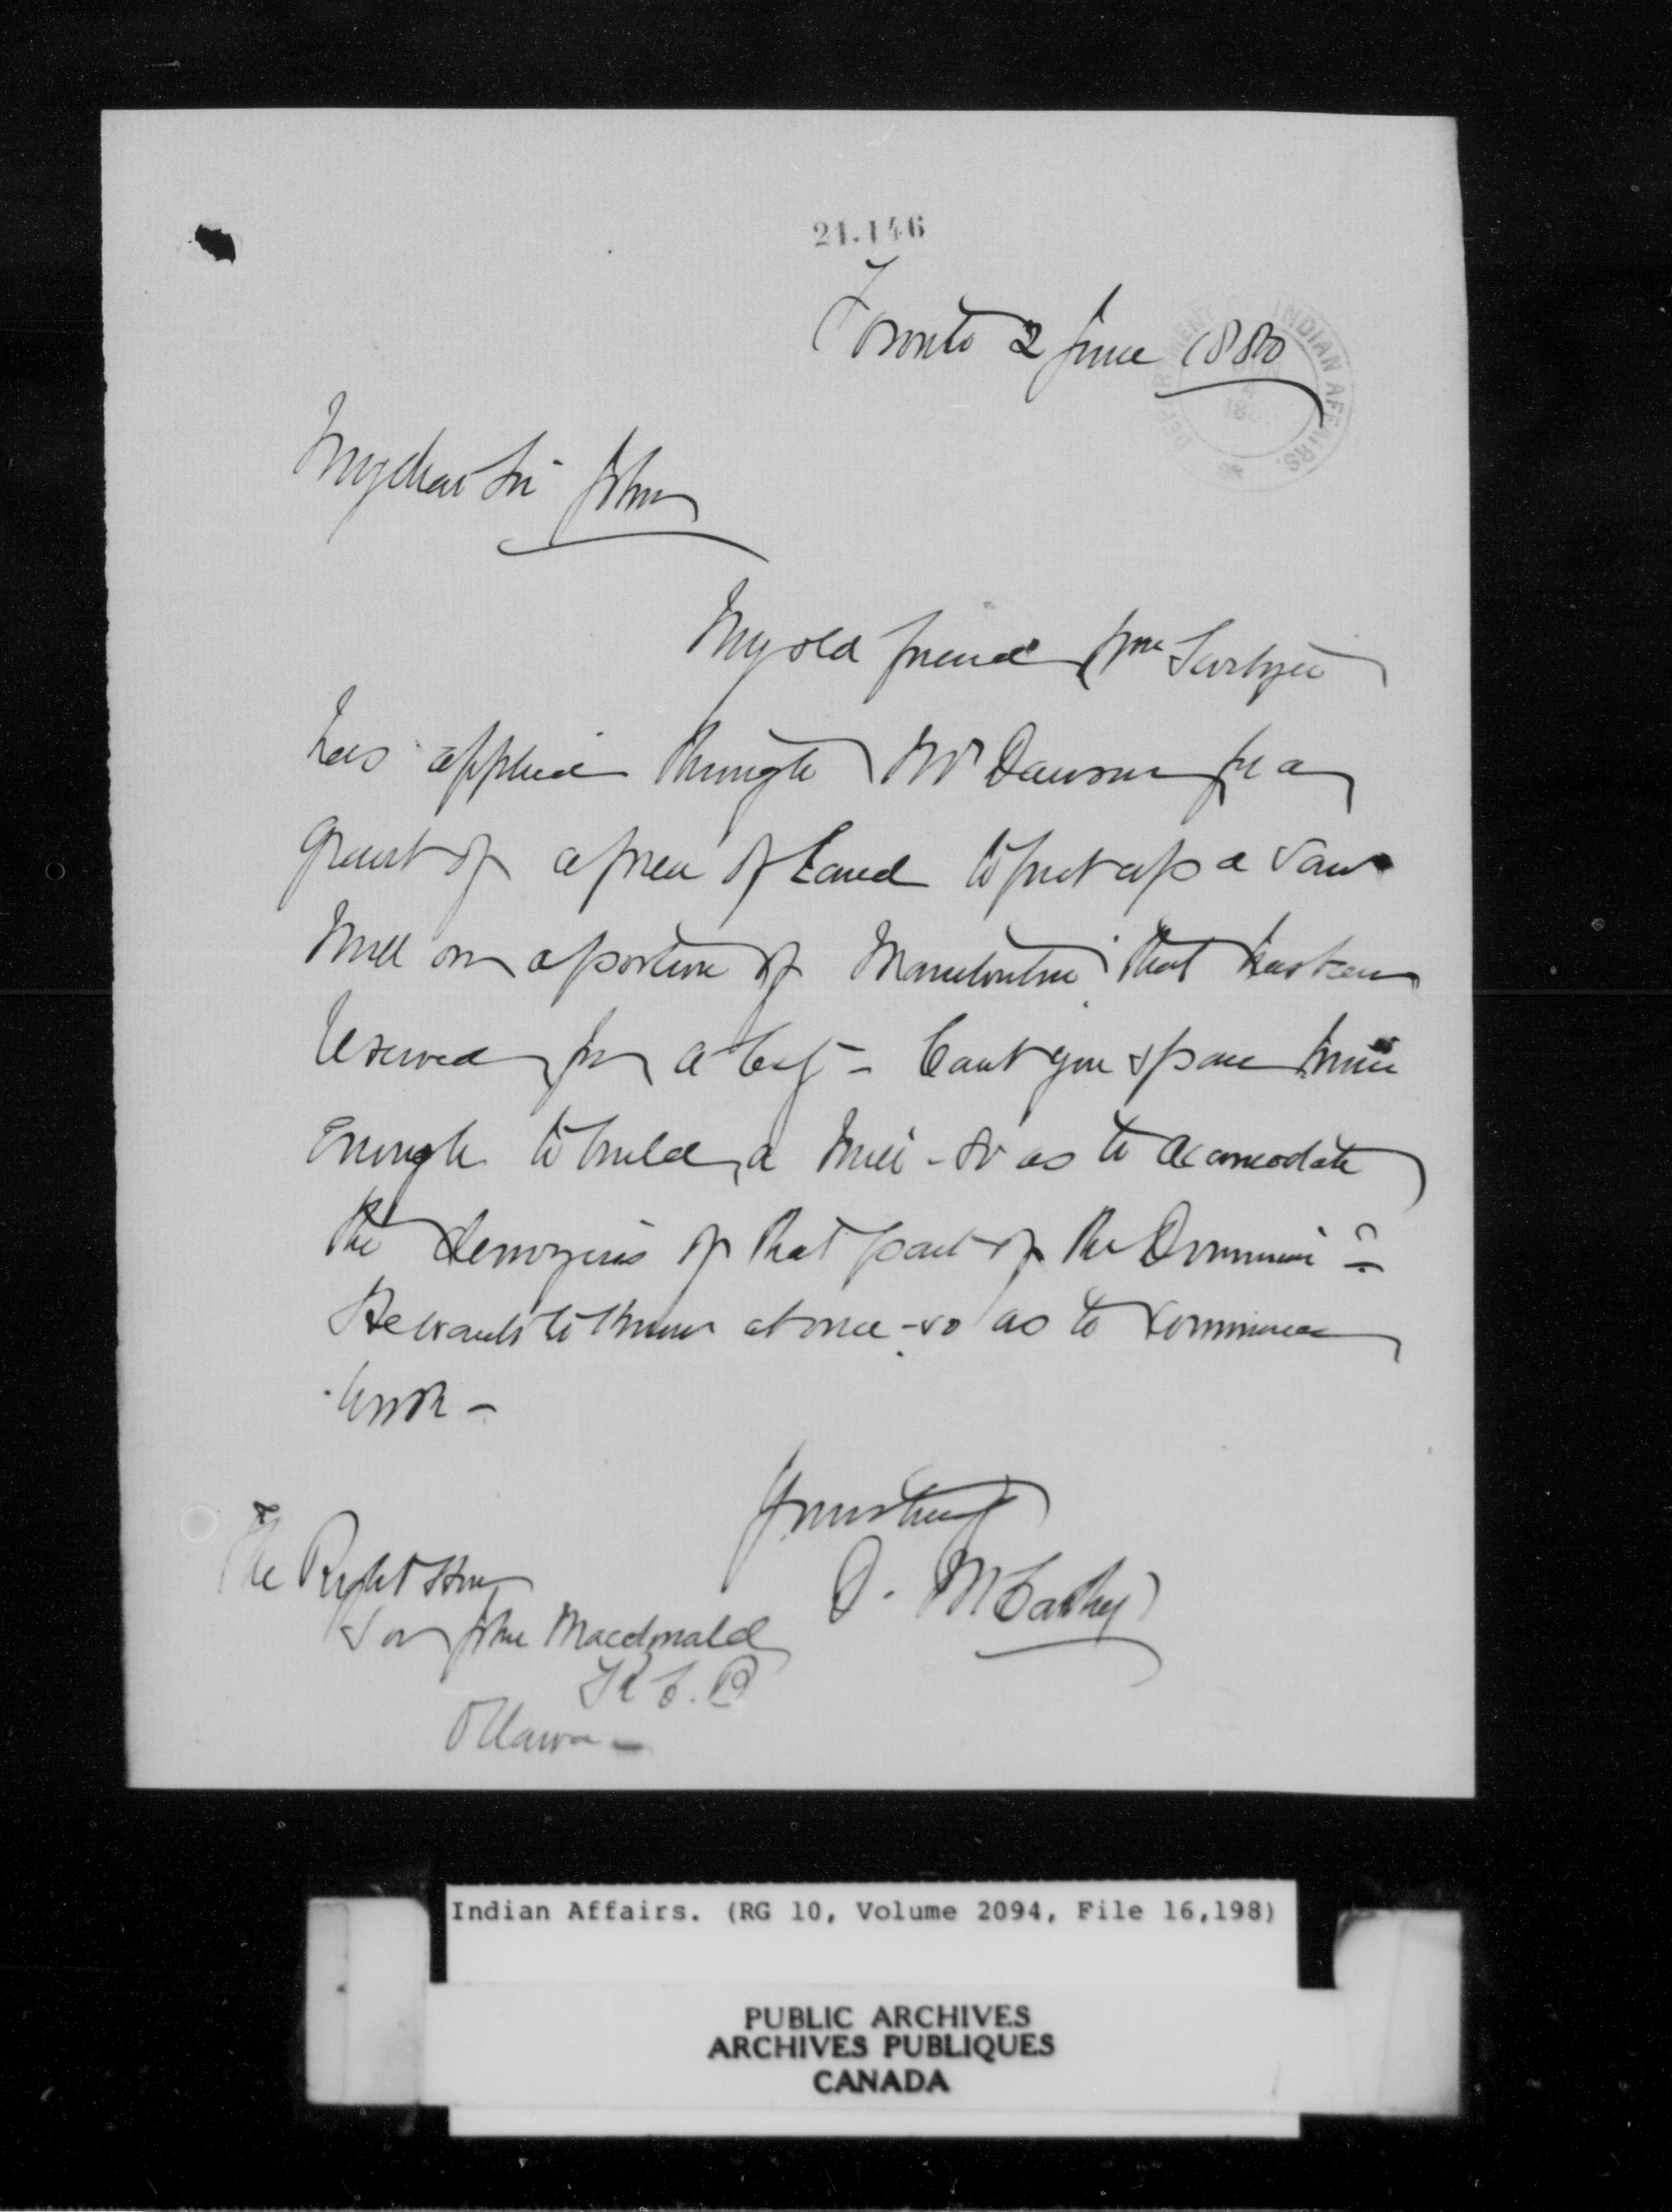 21.146
Toronto 2 June 1880
DEPARTMENT INDIAN AFFAIRS.
My dear Sir John
My old friend
has applied through Mr Dawson for a
grant of a piece of Land to put up a Saw
Mill on a portion of Manitoulin that has been
reserved for a - Cant you spare him
Enough to build a Mill - so as to accomodate
the of that part of the Dominion -
He wants to know at once - so as to commence
work -
Yours truly
D. McCarthy
The Right Hon
Sir John Macdonald
K C. B
Ottawa -
Indian Affairs. (RG 10, Volume 2094, File 16,198)
PUBLIC ARCHIVES
ARCHIVES PUBLIQUES
CANADA